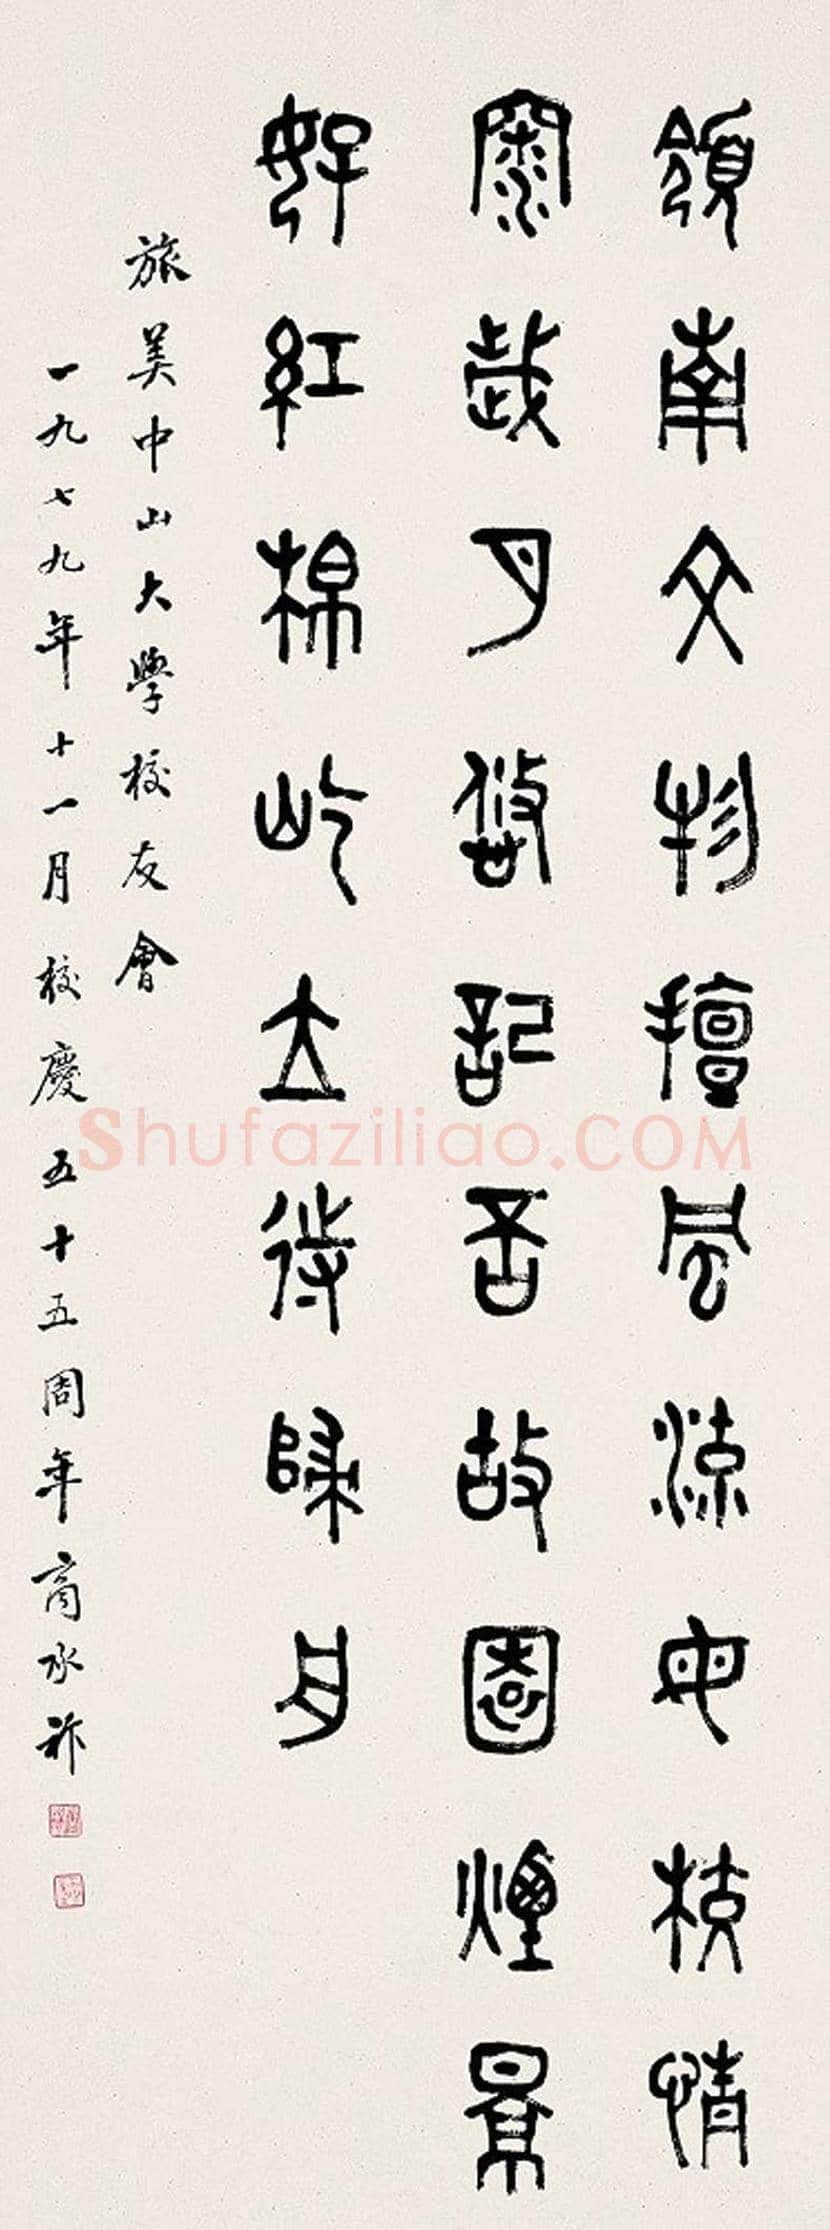 領南文物擅風流母校情
深歲月悠記否故園煙景
好紅棉屹立待歸舟
旅美中山大學校友會
一九七九年十一月校慶五十五周年商承祚
Shufaziliao.COM